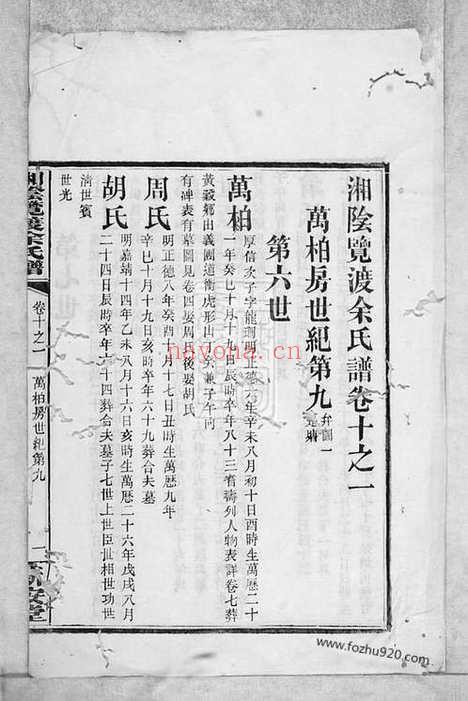 湘陰覽渡余氏譜卷十之一
萬柏房世紀第九
第六世
萬柏
厚信次子字龍珂明正德六年辛未八月初十日酉時生萬曆二十
一年癸巳十月十九日辰時卒年八十三耆壽列人物表詳卷七葬
黃穀鄉由義團道衡虎形山
兼子午向
有碑表有墓圖見卷四娶周氏後娶胡氏
周氏
明正德八年癸酉十月十七日丑時生萬曆九年
辛巳十月十九日亥時卒年六十九葬合夫墓
胡氏
明嘉靖十四年乙未八月十六日亥時生萬曆二十六年戊戌八月
二十四日辰時卒年六十四葬合夫墓子七世上世臣世相世功世
清世賓
世光
湘陰覽渡余氏譜
卷十之一
萬柏房世紀第九
一
nayona.cn
www.fozhu920.com